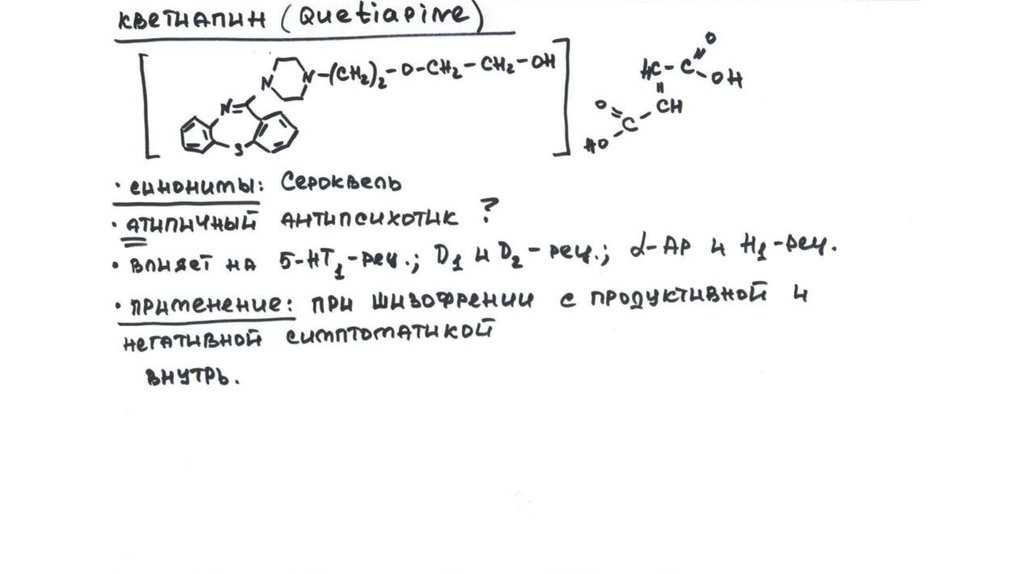 КВЕТИАПИН (Quetiapine)
N N-(CH₂)₂-O-CH₂-CH₂-OH
N
S
O
HC-C
OH
CH
O
C
HO
• СИНОНИМЫ: СЕРОКВЕЛЬ
• АТИПИЧНЫЙ АНТИПСИХОТИК ?
• ВЛИЯЕТ НА 5-HT₁-рец.; D₁ и D₂-рец.; α-АР и H₁-рец.
• ПРИМЕНЕНИЕ: ПРИ ШИЗОФРЕНИИ С ПРОДУКТИВНОЙ И
НЕГАТИВНОЙ СИМПТОМАТИКОЙ
ВНУТРЬ.